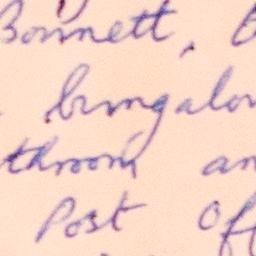 Bonnett,
bungalow
throom an
Post Off